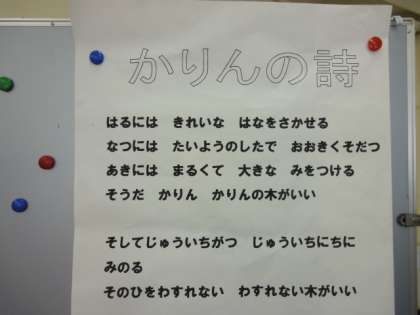 かりんの詩
はるには　きれいな　はなをさかせる
なつには　たいようのしたで　おおきくそだつ
あきには　まるくて　大きな　みをつける
そうだ　かりん　かりんの木がいい
そしてじゅういちがつ　じゅういちにちに
みのる
そのひをわすれない　わすれない木がいい